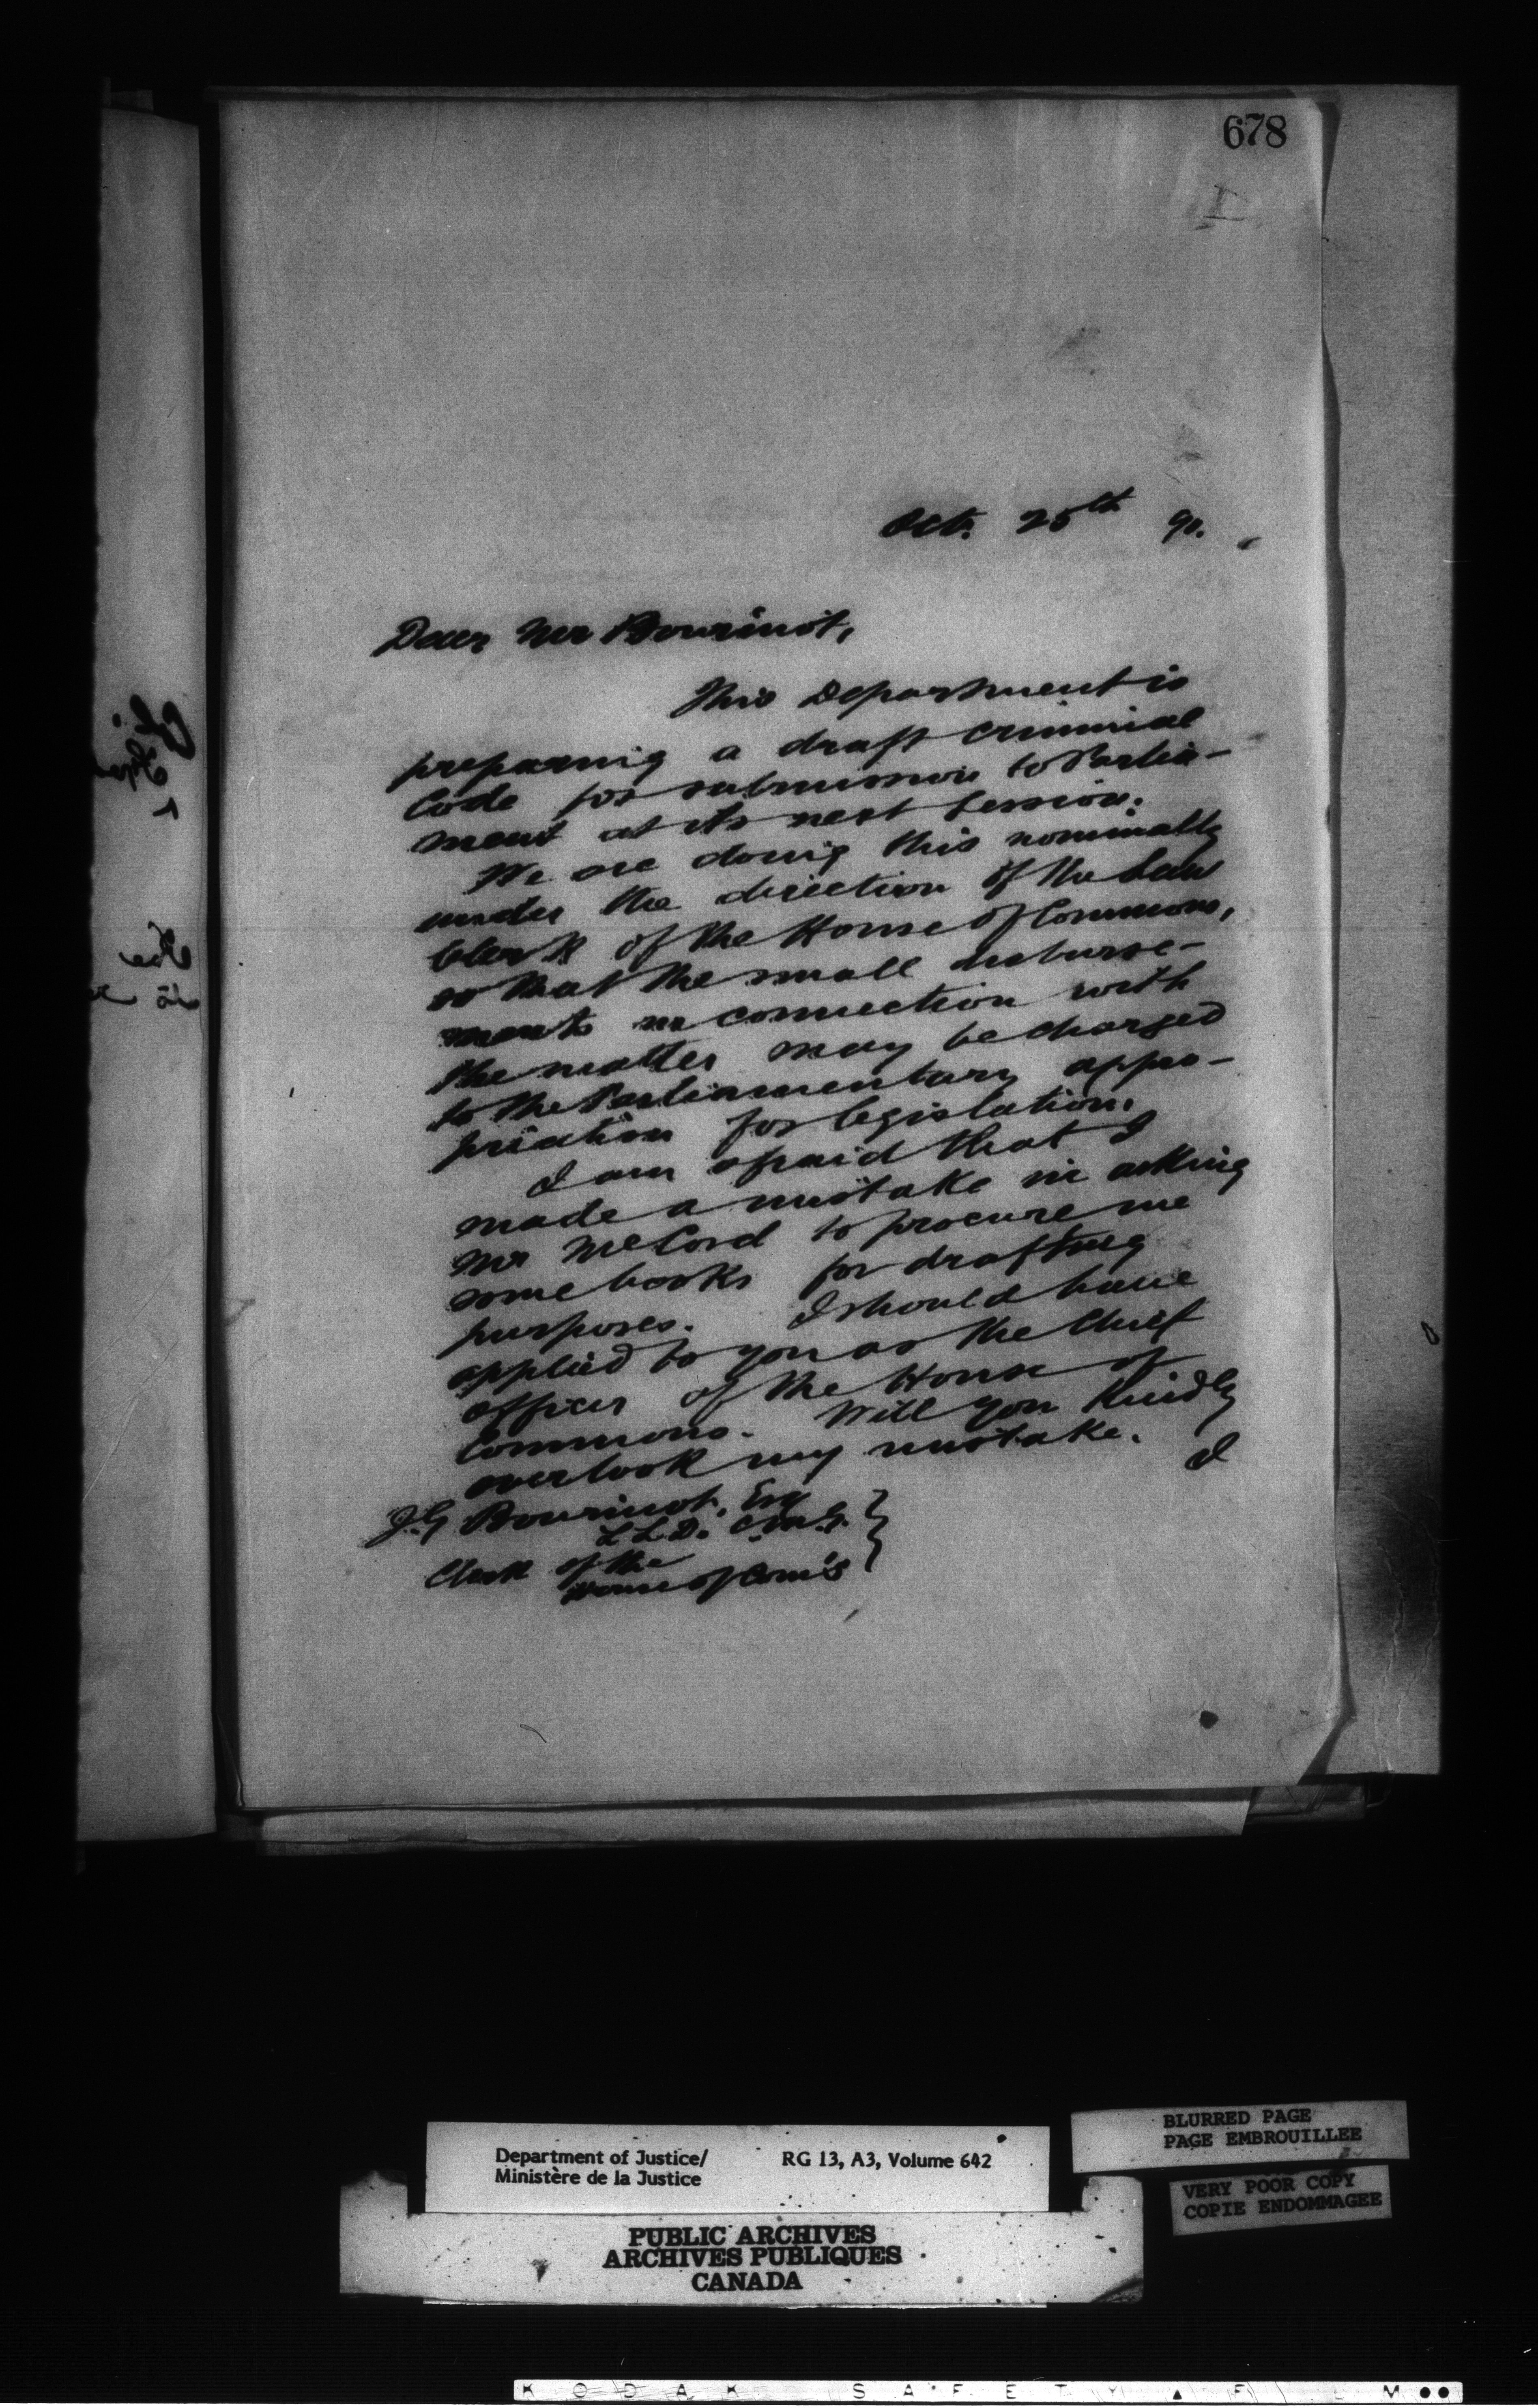 678
Oct. 25th 90.
Dear Mr Bourinot,
This Department is
preparing a draft criminal
Code for submission to Parlia-
ment at its next Session.
We are doing this nominally
under the direction of the Law
Clerk of the House of Commons,
so that the small disburse-
ments in connection with
the matter may be charged
to the Parliamentary appro-
priation for legislation.
I am afraid that I
made a mistake in asking
Mr McCord to procure me
some books for drafting
purposes. I should have
applied to you as the Chief
officer of the House of
Commons. Will you kindly
overlook my mistake.
I
J.G. Bourinot, Esq
L.L.D. C.M.G.
Clerk of the
House of Com's
Department of Justice/
Ministère de la Justice
RG 13, A3, Volume 642
BLURRED PAGE
PAGE EMBROUILLEE
VERY POOR COPY
COPIE ENDOMMAGEE
PUBLIC ARCHIVES
ARCHIVES PUBLIQUES
CANADA
KODAK SAFETY FILM